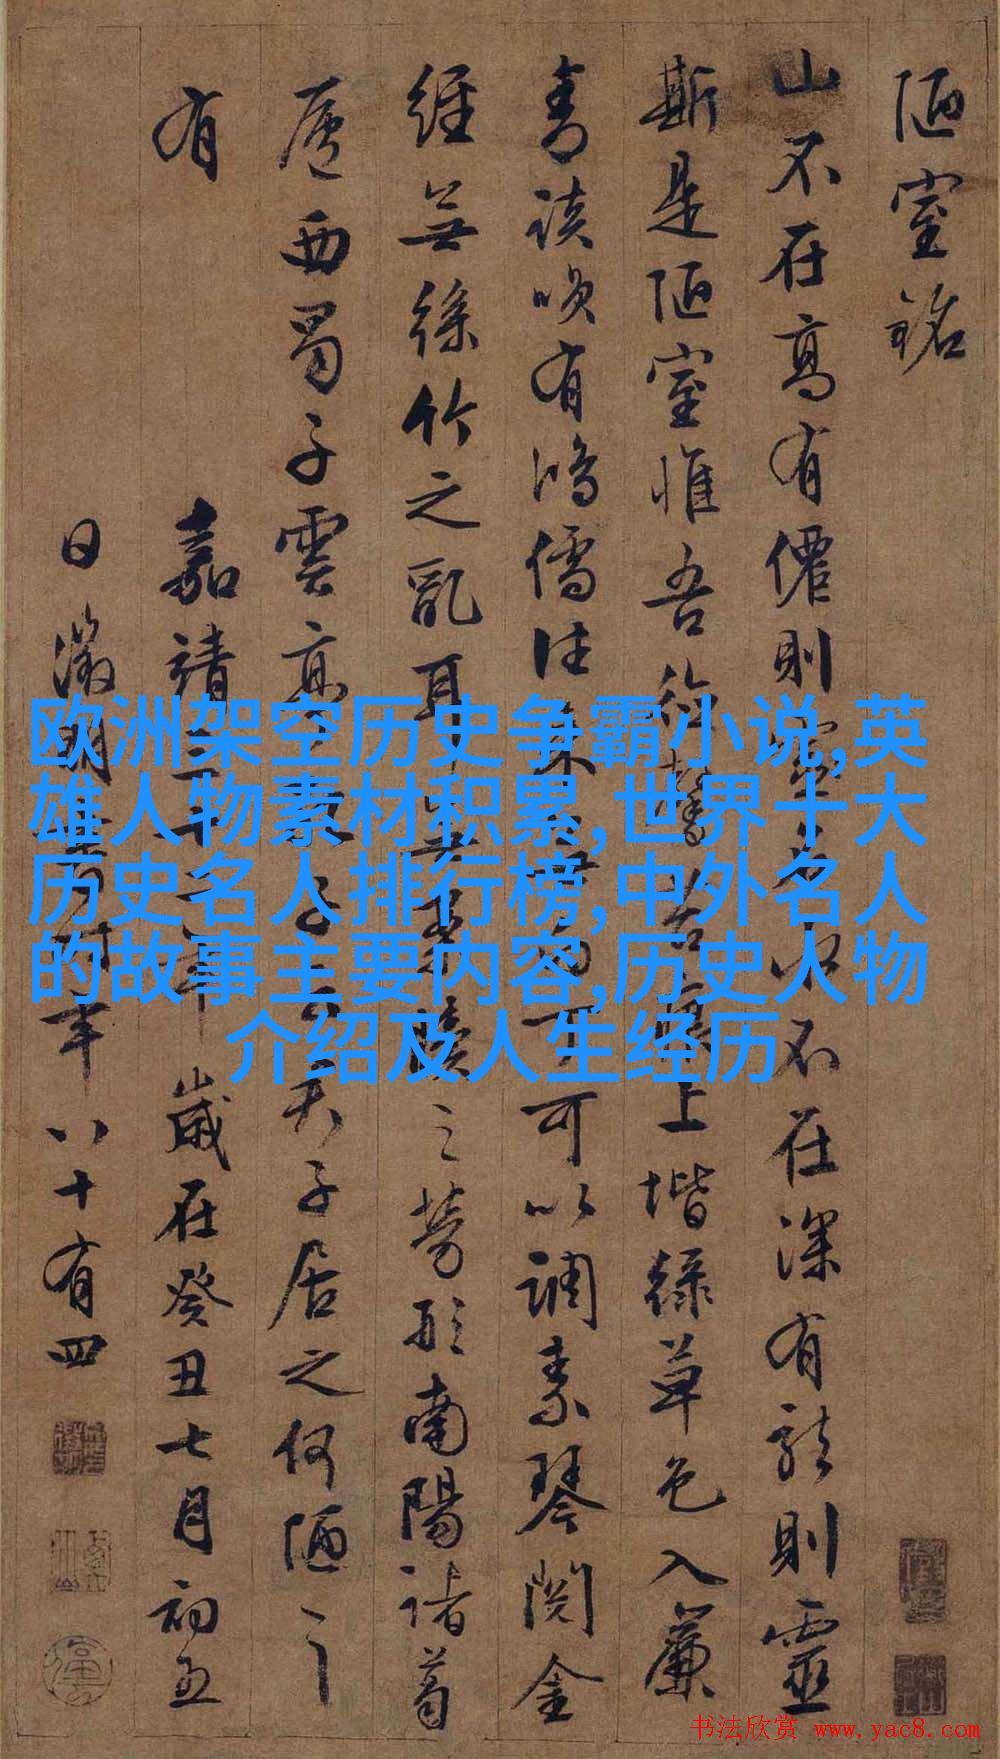 陋室銘
山不在高有僊則名水不在深有龍則靈
斯是陋室惟吾德馨苔痕上堦綠草色入簾
青談咲有鴻儒往來無白丁可以調素琴閱金
經無絲竹之亂耳無案牘之勞形南陽諸葛
廬西蜀子雲亭孔子云君子居之何陋之
有
嘉靖三十二年歲在癸丑七月初五
日徵明書時年八十有四
欧洲架空历史争霸小说,英
雄人物素材积累,世界十大
历史名人排行榜,中外名人
的故事主要内容,历史人物
介绍及人生经历
书法欣赏 www.yac8.com